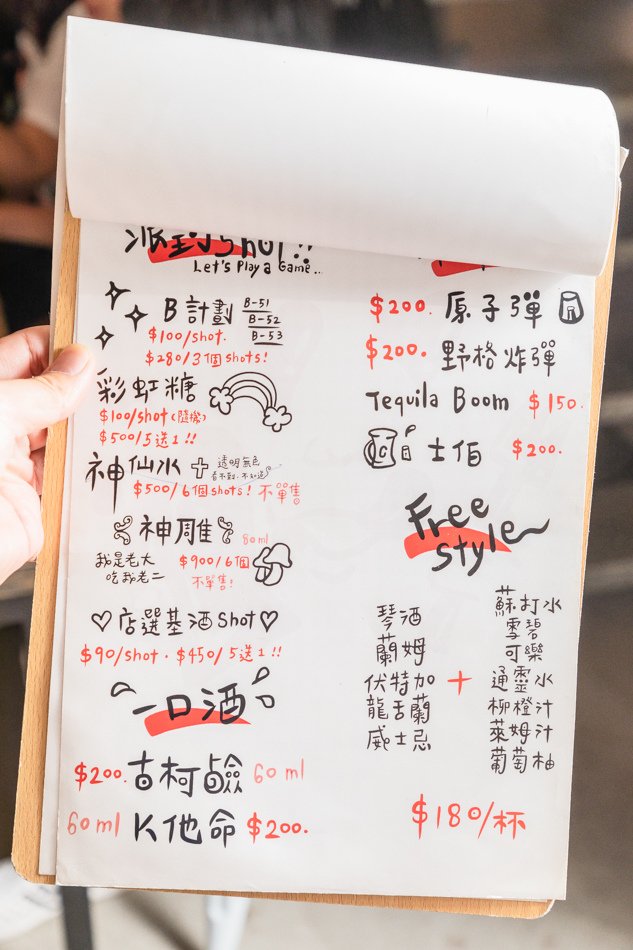 派對Shot!!
Let's Play a Game...
B計劃
B-51
B-52
B-53
$100/shot.
$280/3個shots!
彩虹糖
$100/shot(隨機)
$500/5送1!!
神仙水+
透明無色
看不到.不知道
$500/6個shots! 不單售
神雕
80ml
我是老大
吃我老二
$900/6個
不單售!
店選基酒Shot
$90/shot.$450/5送1!!
一口酒
$200.古柯鹼60ml
60ml K他命$200.
$200.原子彈
$200.野格炸彈
Tequila Boom $150.
士伯 $200.
Free
style
琴酒
蘭姆
伏特加
龍舌蘭
威士忌
+
蘇打水
雪碧
可樂
通靈水
柳橙汁
萊姆汁
葡萄柚
$180/杯